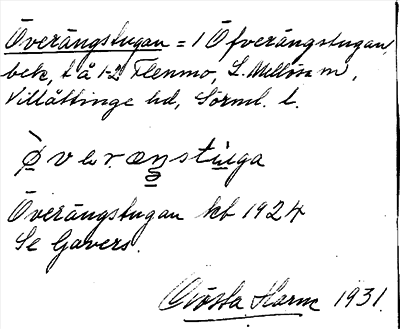 Överängstugan = 1 Öfverängstugan,
bek, t å 1-2 Flenmo, L. Mellösa sn,
Villåttinge hd, Sörml. l.
Överängstugan kb 1924
Se Gavers.
Gösta Harne 1931.